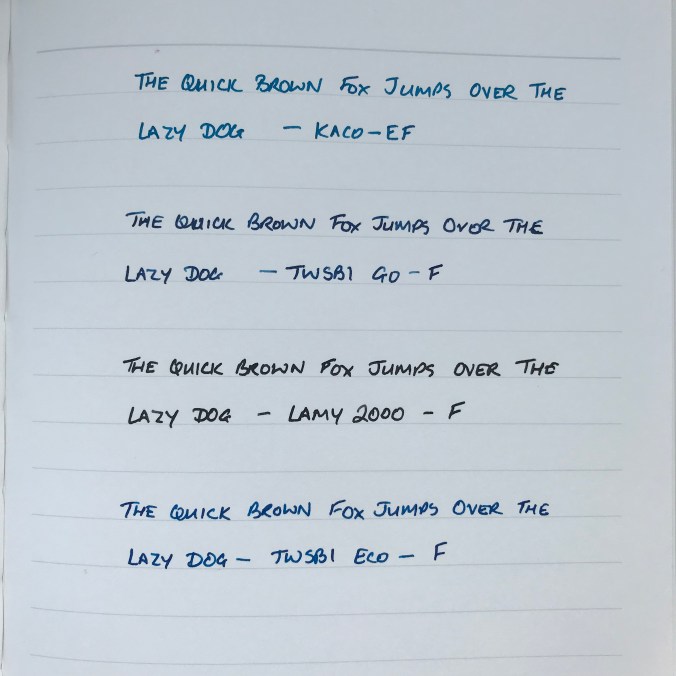 THE QUICK BROWN FOX JUMPS OVER THE
LAZY DOG – KACO-EF
THE QUICK BROWN FOX JUMPS OVER THE
LAZY DOG – TWSBI GO - F
THE QUICK BROWN FOX JUMPS OVER THE
LAZY DOG – LAMY 2000 - F
THE QUICK BROWN FOX JUMPS OVER THE
LAZY DOG – TWSBI ECO – F